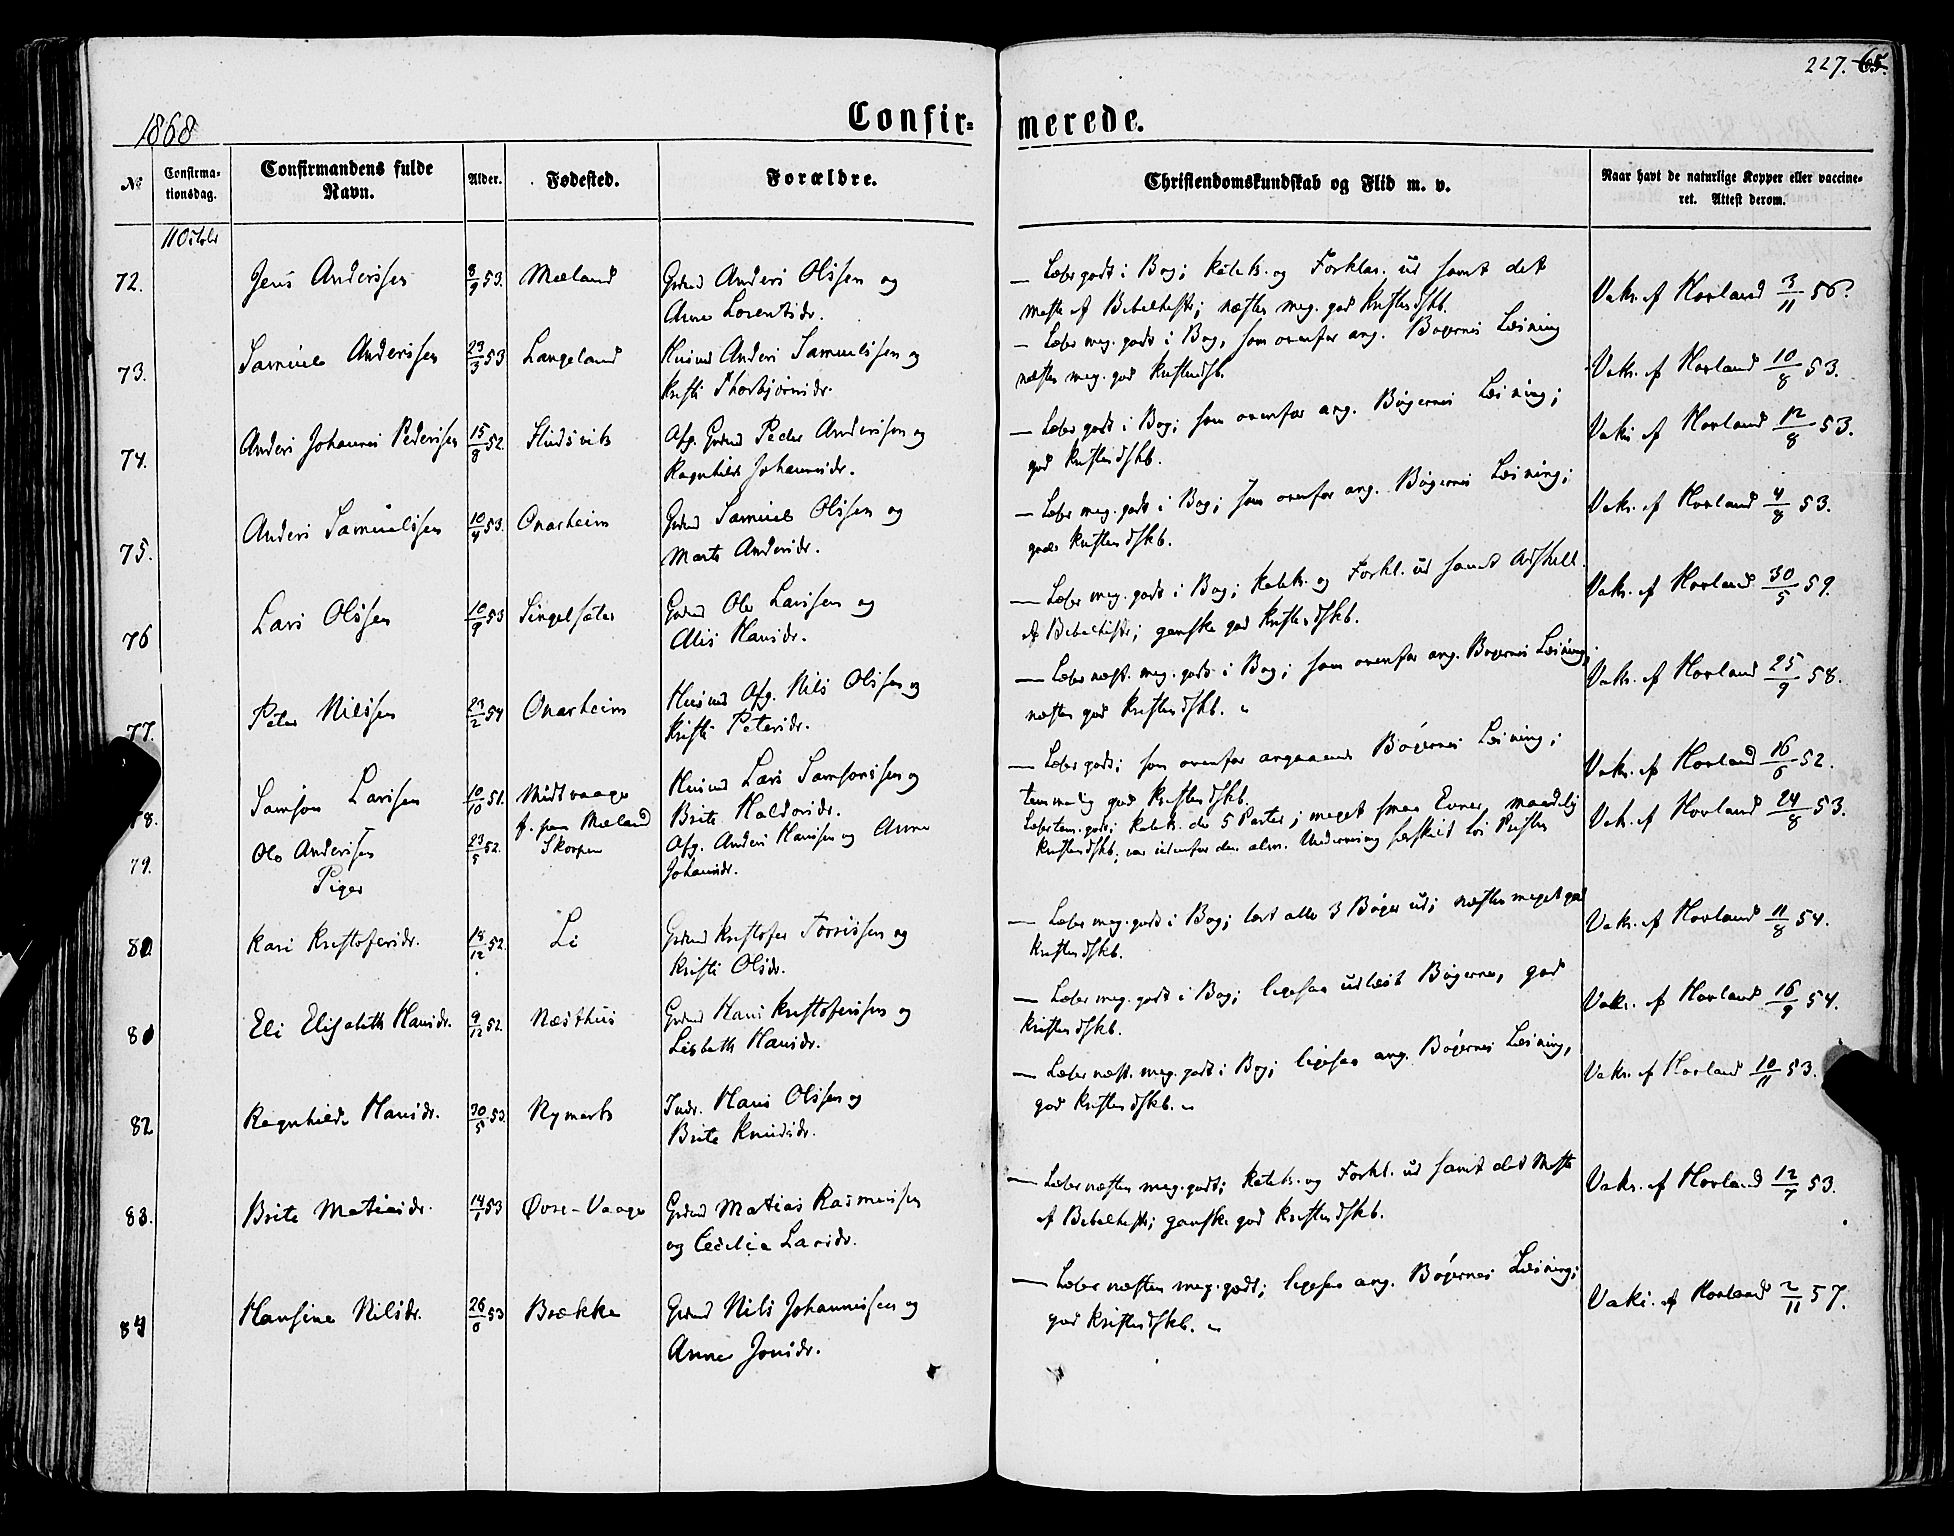 227. 65.
1868
Confir=merede.
No
Confirma-
tionsdag.
Confirmandens fulde
Navn.
Alder.
Fødested.
Forældre.
Christendomskundskab og Flid m. v.
Naar havt de naturlige Kopper eller vaccine-
ret. Attest derom.
11 Octobr
72. Jens Anderssen 8/9 53. Mæland Grdmd Anders Olssen og
Anne Lorentsdr.
— Læser godt i Bog; Katek. og Forklar. ud samt det
meste af Bibelhist; næsten meg. god Kristendskb.
Vakc. af Hovland 3/11 56.
73. Samuel Anderssen 23/3 53 Langeland Husmd Anders Samuelssen og
Kristi Thorbjørnsdr.
— Læser meg. godt i Bog, som ovenfor ang. Bøgernes Læsning
næsten meg. god Kristendskb.
Vakc. af Hovland 10/8 53.
74. Anders Johannes Pederssen 15/8 52. Fludsvik Afg. Grdmd Peder Anderssen og
Ragnhilde Johannesdr.
— Læser godt i Bog; som ovenfor ang. Bøgernes Læsning;
god Kristendskb.
Vakc. af Hovland 12/8 53.
75. Anders Samuelssen 10/4 53. Onarheim Grdmd Samuel Olssen og
Marta Andersdr.
— Læser meg. godt i Bog; som ovenfor ang. Bøgernes Læsning;
god Kristendskb.
Vakc. af Hovland 4/8 53.
76 Lars Olssen 10/9 53 Singelsæter Grdmd Ole Larssen og
Alis Hansdr.
— Læser meg. godt i Bog; Katek. og Forkl. ud samt Adskill.
af Bibelhist; ganske god Kristendskb.
Vakc. af Hovland 30/5 59.
77. Peter Nilssen 23/2 54 Onarheim Husmd Afg. Nils Olssen og
Kristi Petersdr.
— Læser næst. meg. godt i Bog; som ovenfor ang. Bøgernes Læsning;
næsten god Kristendskb.
Vakc. af Hovland 25/9 58.
78. Samson Larssen 10/10 51. Midtvaage Husmd Lars Samsonssen og
Brite Haldorsdr.
— Læser godt; som ovenfor angaaende Bøgernes Læsning;
temmelig god Kristendskb.
Vakc. af Hovland 16/6 52.
79. Ole Anderssen 23/5 52. f. paa Mæland
Skorpen Afg. Anders Hanssen og Anne
Johannesdr.
Læser tem. godt; Katek. de 5 Parter; meget smaa Evner, maadelig
Kristendskb; var udenfor den alm. Undervisning hos Presten
Vak. af Hovland 24/8 53.
Piger
80. Kari Kristofersdr. 18/12 52. Li Grdmd Kristofer Torrissen og
Kristi Olsdr.
— Læser meg. godt i Bog; lært alle 3 Bøger ud; næsten meget god
Kristendskb.
Vakc. af Hovland 11/8 54.
81 Eli Elisabeth Hansdr. 9/12 52. Næsthus Grdmd Hans Kristoferssen og
Lisbeth Hansdr.
— Læser meg. godt i Bog; ligesaa udlæst Bøgerne, god
Kristendskb.
Vakc. af Hovland 16/9 54.
82 Ragnhilde Hansdr. 30/5 53. Nymark Indr. Hans Olssen og
Brite Knudsdr.
— Læser næst. meg. godt i Bog; ligesaa ang. Bøgernes Læsning,
god Kristendskb.
Vakc. af Hovland 10/11 53.
83. Brite Matiasdr. 14/1 53 Øvre-Vaage Grdmd Matias Rasmussen
og Cecilia Larsdr.
— Læser næsten meg. godt; Katek. og Forkl. ud samt det Meste
af Bibelhist; ganske god Kristendskb.
Vakc. af Hovland 12/7 53.
84 Hansine Nilsdr. 26/6 53 Brække Grdmd Nils Johannessen og
Anne Jonsdr.
— Læser næsten meg. godt; ligesaa ang. Bøgernes Læsning;
god Kristendskb.
Vakc. af Hovland 2/11 57.